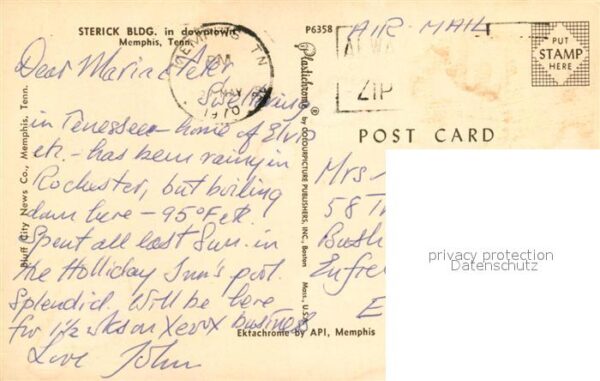 STERICK BLDG. in downtown
Memphis, Tenn.
P6358
AIR MAIL
MEMPHIS TN
PM
1970
ZIP
PUT
STAMP
HERE
POST CARD
Dear Maria & Peter,
Sweltering
in Tenessee - home of Elvis
etc. - has been rainy in
Rochester, but boiling
down here - 95°F etc.
Spent all last Sun. in
the Holliday Inn's pool.
Splendid. Will be here
for 1½ wks on Xerox business
Love John
Bluff City News Co., Memphis, Tenn.
Plastichrome ® by COLOURPICTURE PUBLISHERS, INC., Boston Mass., U.S.A.
Ektachrome by API, Memphis
Mrs
58
Bush
E
privacy protection
Datenschutz